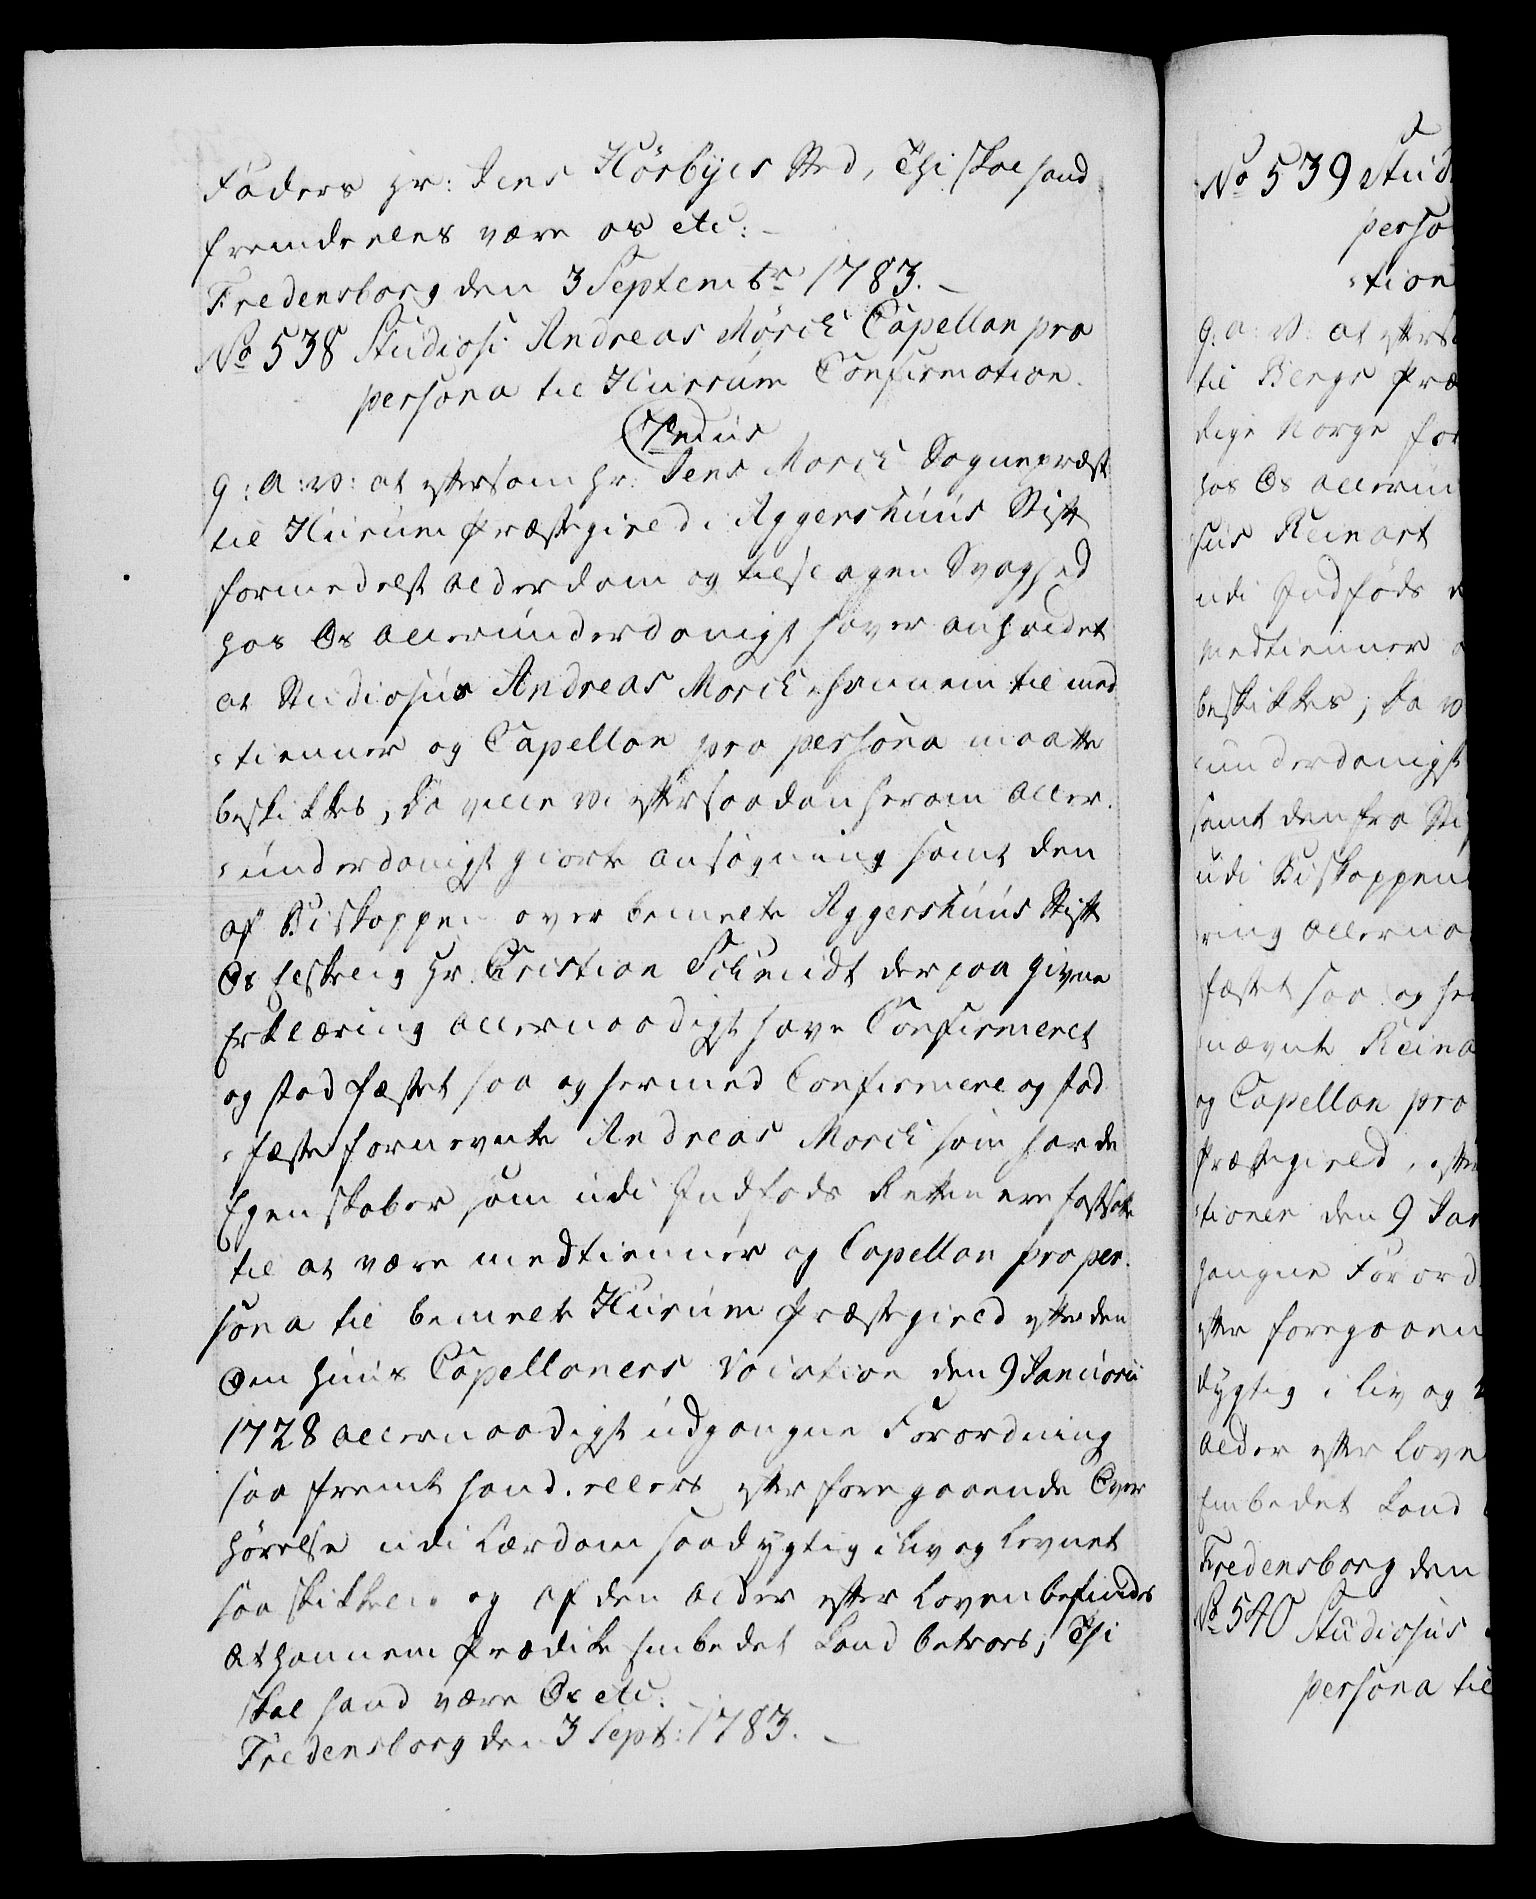 Faders Hr: Jens Hörbyes Sted, Thi skal hand
fremdeeles være os etc:
Fredensborg den 3 Septembr 1783.
No 538 Studiosi Andreas Mörch Capellan pro
persona til Hurrum Confirmation.
G: A: V: at eftersom Hr. Jens Morch Sognepræst
til Hurum Præstegield i Aggershuus Stift
formedelst Alderdom og tilslagen Svaghed
hos Os allerunderdanigst haver anholdet
at Studiosus Andreas Morch hannem til med
=tienner og Capellan pro persona maatte
beskikkes, Da ville Vi efter saadan herom aller
=underdanigst giorte ansøgning samt den
af Biskoppen over bemelte Aggershuus Stift
Os Elskelig Hr. Cristian Schmidt derpaa givne
Erklæring allernaadigst have Confirmeret
og stadfæstet saa og hermed Confirmere og stad
=fæste fornevnte Andreas Morch som har de
Egenskaber som udi Indföds Retten ere fastsatte
til at være medtienner og Capellan pro per
sona til bemelte Hurum Præstegield efter den
Om Huus Capellaners Vocation den 9 Januarii
1728 allernaadigst udgangne Forordning
saa fremt hand ellers efter foregaaende Over
hørelse udi Lærdom saa dygtig i Liv og Levnet
saa skikkelig og af den alder efter Loven befindes
At hannem Prædike Embedet kand betroes; Thi
skal hand være Os etc.
Fredensborg den 3 Sept: 1783.
No 539 Stud
perso
=tion
G: A: V: at efters
til Bergs Præ
rige Norge for
hos Os allerun
sus Reinart
udi Indføds
medtienner
beskikkes; Da V
=underdanigst
samt den fra Sti
udi Biskoppen
ring allerna
fæstet saa og her
nævnte Reina
og Capellan pro
Præstegield, efter
tioner den 9 Jan
gangne Forord
efter foregaaen
dygtig i Liv og
alder efter Love
Embedet kand
Fredensborg den
No 540 Studiosus
persona til